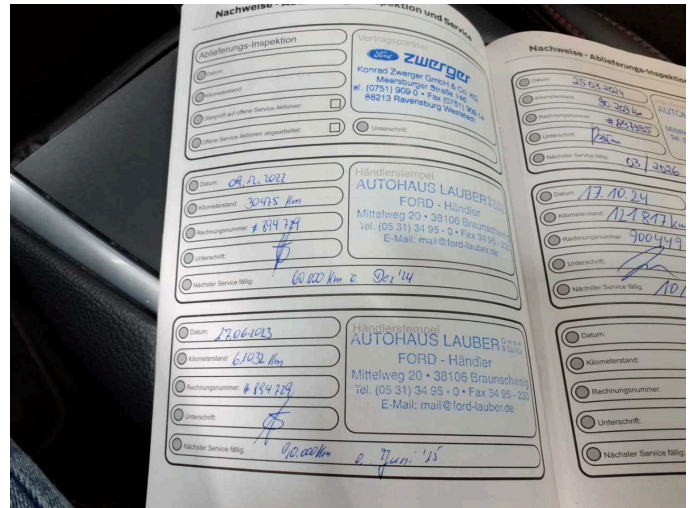 Nachweise - Ablieferungs-Inspektion und Service
Ablieferungs-Inspektion
Datum:
Kilometerstand:
Überprüft auf offene Service Aktionen:
Offene Service Aktionen abgearbeitet:
Vertragspartner
Ford Zwerger
Konrad Zwerger GmbH & Co. KG
Meersburger Straße 146
Tel. (0751) 909 0 • Fax (0751) 909 14
88213 Ravensburg Weststadt
Unterschrift:
Datum: 09.12.2022
Kilometerstand: 30475 Km
Rechnungsnummer: # 894729
Unterschrift:
Nächster Service fällig: 60.000 Km o. Dez '24
Händlerstempel
AUTOHAUS LAUBER GmbH & Co KG
FORD - Händler
Mittelweg 20 • 38106 Braunschweig
Tel. (05 31) 34 95 - 0 • Fax 34 95 - 230
E-Mail: mail@ford-lauber.de
Datum: 27.06.2023
Kilometerstand: 61032 Km
Rechnungsnummer: # 894729
Unterschrift:
Nächster Service fällig: 90.000 Km o. Juni '25
Händlerstempel
AUTOHAUS LAUBER GmbH & Co KG
FORD - Händler
Mittelweg 20 • 38106 Braunschweig
Tel. (05 31) 34 95 - 0 • Fax 34 95 - 230
E-Mail: mail@ford-lauber.de
Nachweise - Ablieferungs-Inspektion
Datum: 25.03.2024
Kilometerstand: 90.203 Km
Rechnungsnummer: # 897335
Unterschrift:
Nächster Service fällig: 03/2026
Datum: 17.10.24
Kilometerstand: 121817 Km
Rechnungsnummer: 900449
Unterschrift:
Nächster Service fällig: 10/
Datum:
Kilometerstand:
Rechnungsnummer:
Unterschrift:
Nächster Service fällig: